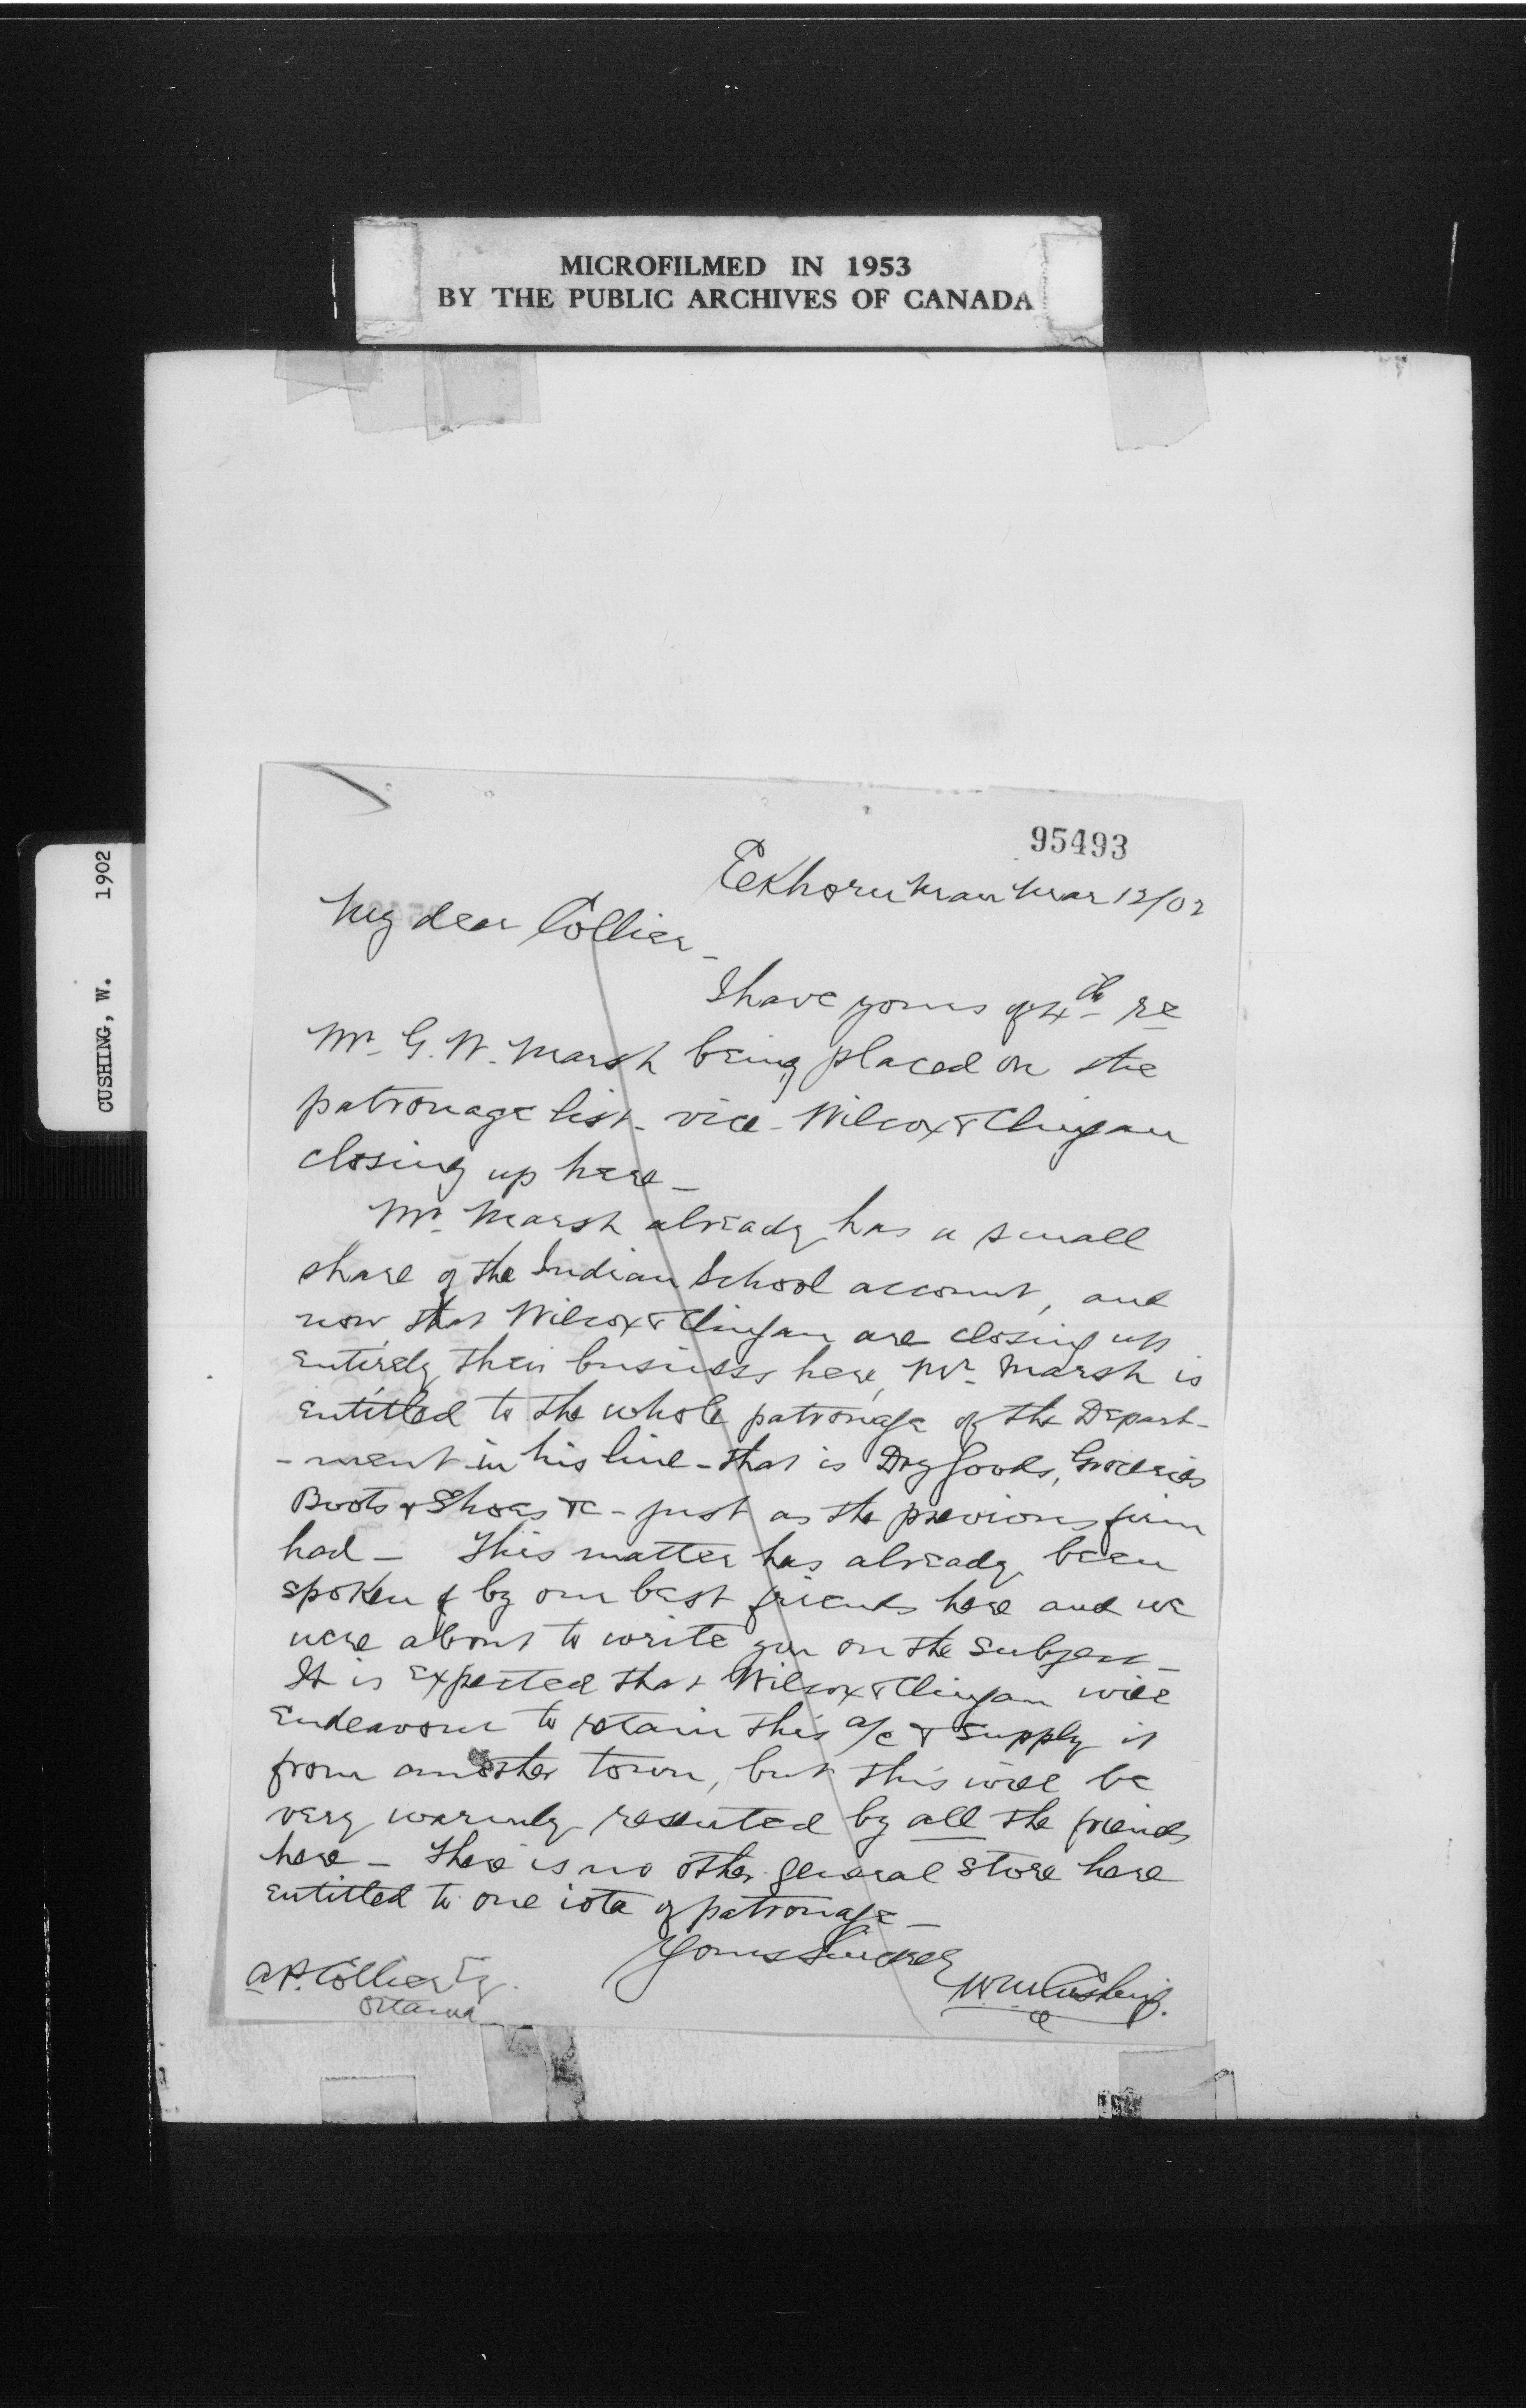 MICROFILMED IN 1953
BY THE PUBLIC ARCHIVES OF CANADA
CUSHING, W. 1902
95493
Elkhorn Man Mar 12/02
My dear Collier_
I have yours of 4th re
Mr. G. W. Marsh being placed on the
patronage list - vice - Wilcox & Clingan
closing up here_
Mr. Marsh already has a small
share of the Indian School account, and
now that Wilcox & Clingan are closing up
entirely their business here, Mr. Marsh is
entitled to the whole patronage of the Depart-
-ment in his line - that is Dry Goods, Groceries
Boots & Shoes &c - just as the previous firm
had - This matter has already been
spoken of by our best friends here and we
were about to write you on the subject_
It is expected that Wilcox & Clingan will
endeavour to retain this a/c & supply it
from another town, but this will be
very warmly resented by all the friends
here - There is no other general store here
entitled to one iota of patronage_
Yours Sincerely
W. M. Cushing.
A.P. Collier Esq.
Ottawa